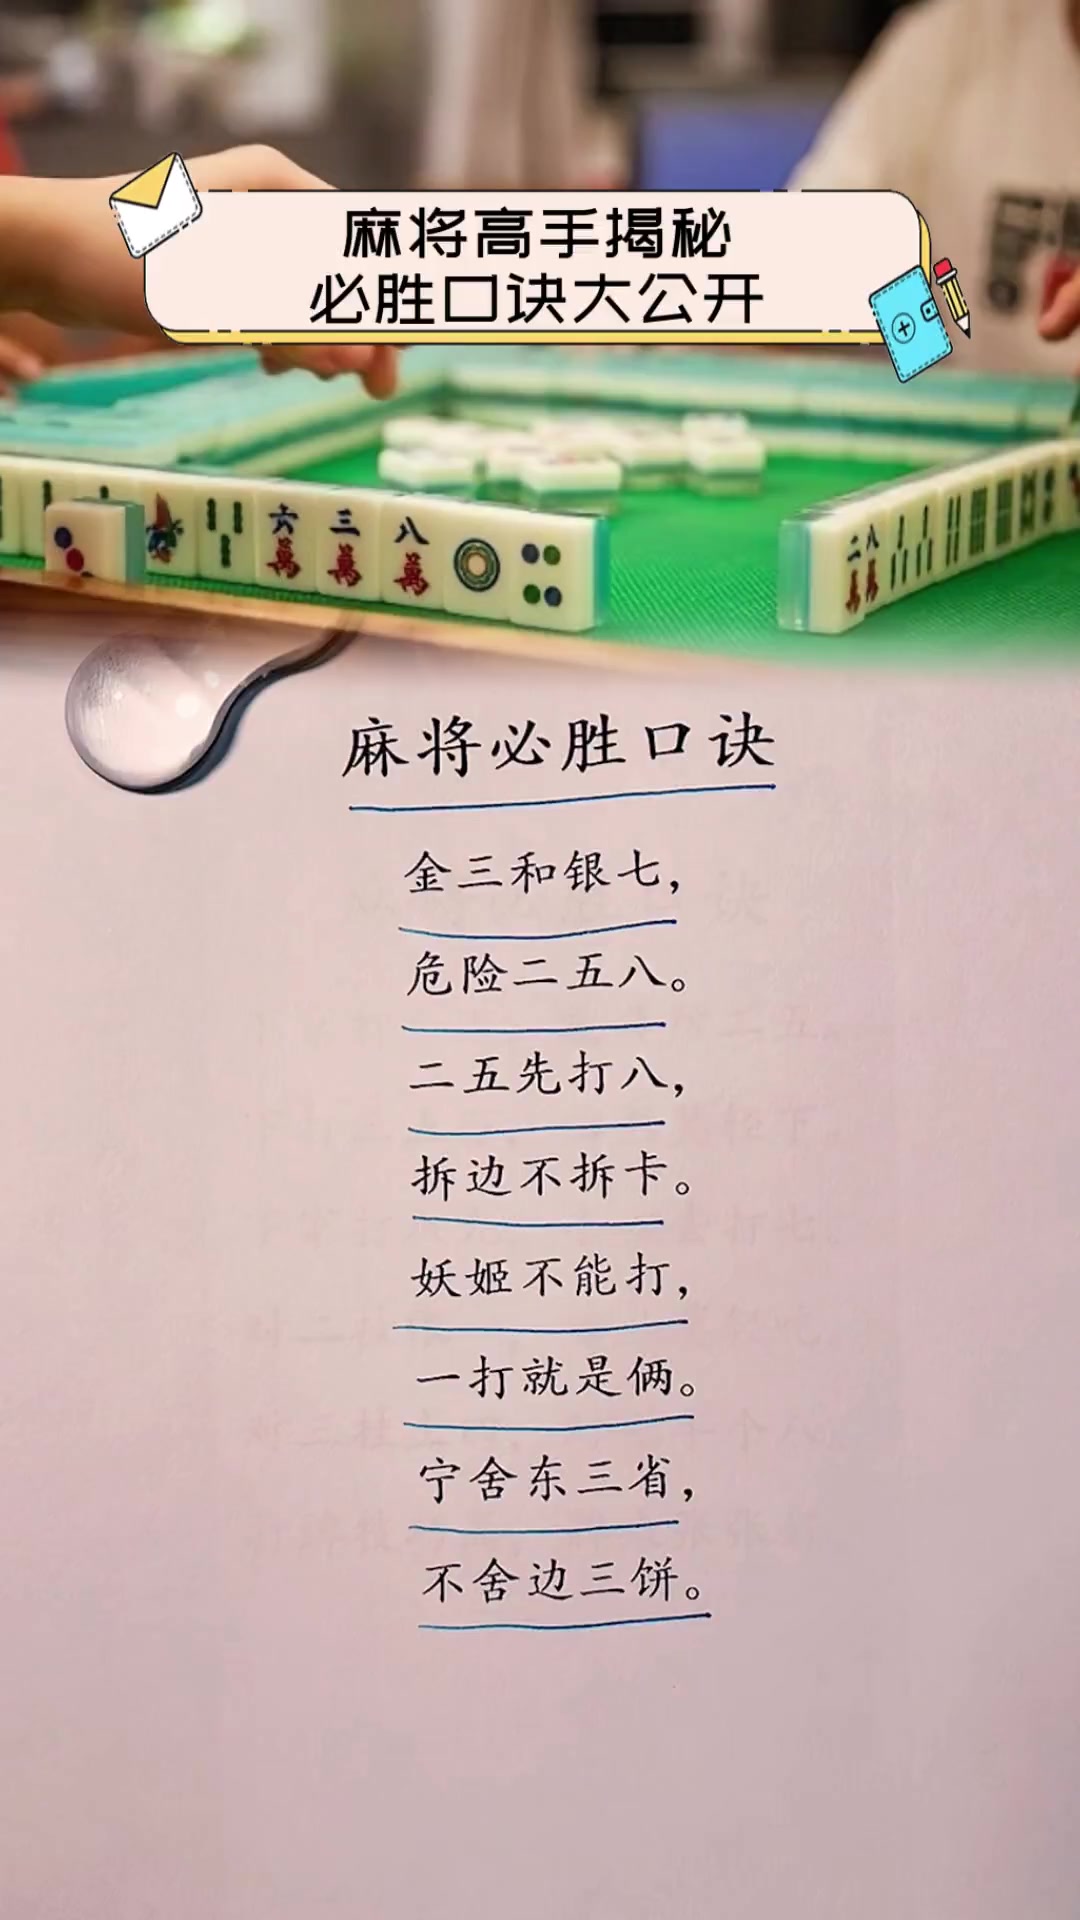 麻将高手揭秘
必胜口诀大公开
六 三 八
萬 萬 萬
二 八
萬 萬
麻将必胜口诀
金三和银七，
危险二五八。
二五先打八，
拆边不拆卡。
妖姬不能打，
一打就是俩。
宁舍东三省，
不舍边三饼。